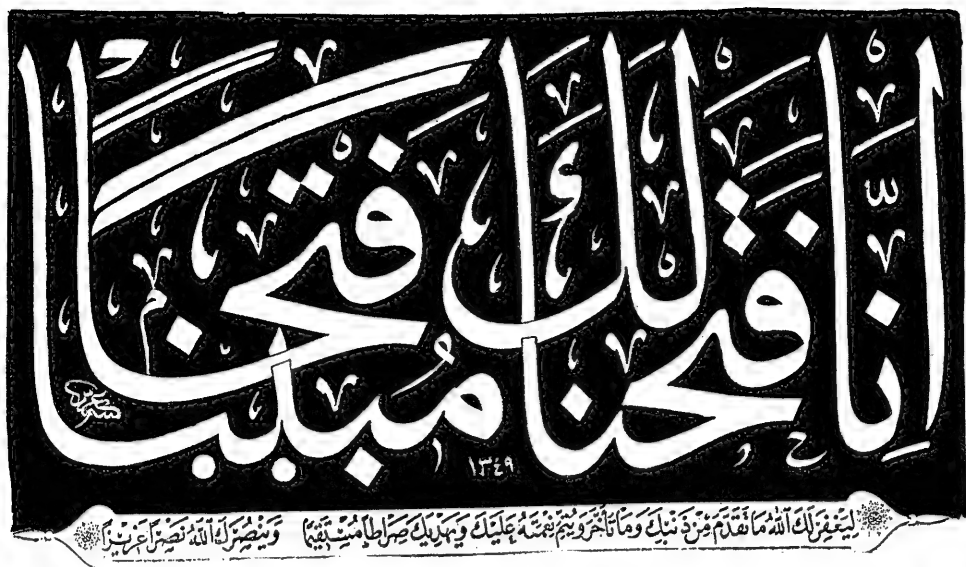 إِنَّا فَتَحْنَا لَكَ فَتْحًا مُبِينًا
١٣٤٩
لِيَغْفِرَ لَكَ اللّٰهُ مَا تَقَدَّمَ مِنْ ذَنْبِكَ وَمَا تَأَخَّرَ وَيُتِمَّ نِعْمَتَهُ عَلَيْكَ وَيَهْدِيَكَ صِرَاطًا مُسْتَقِيمًا وَيَنْصُرَكَ اللّٰهُ نَصْرًا عَزِيزًا